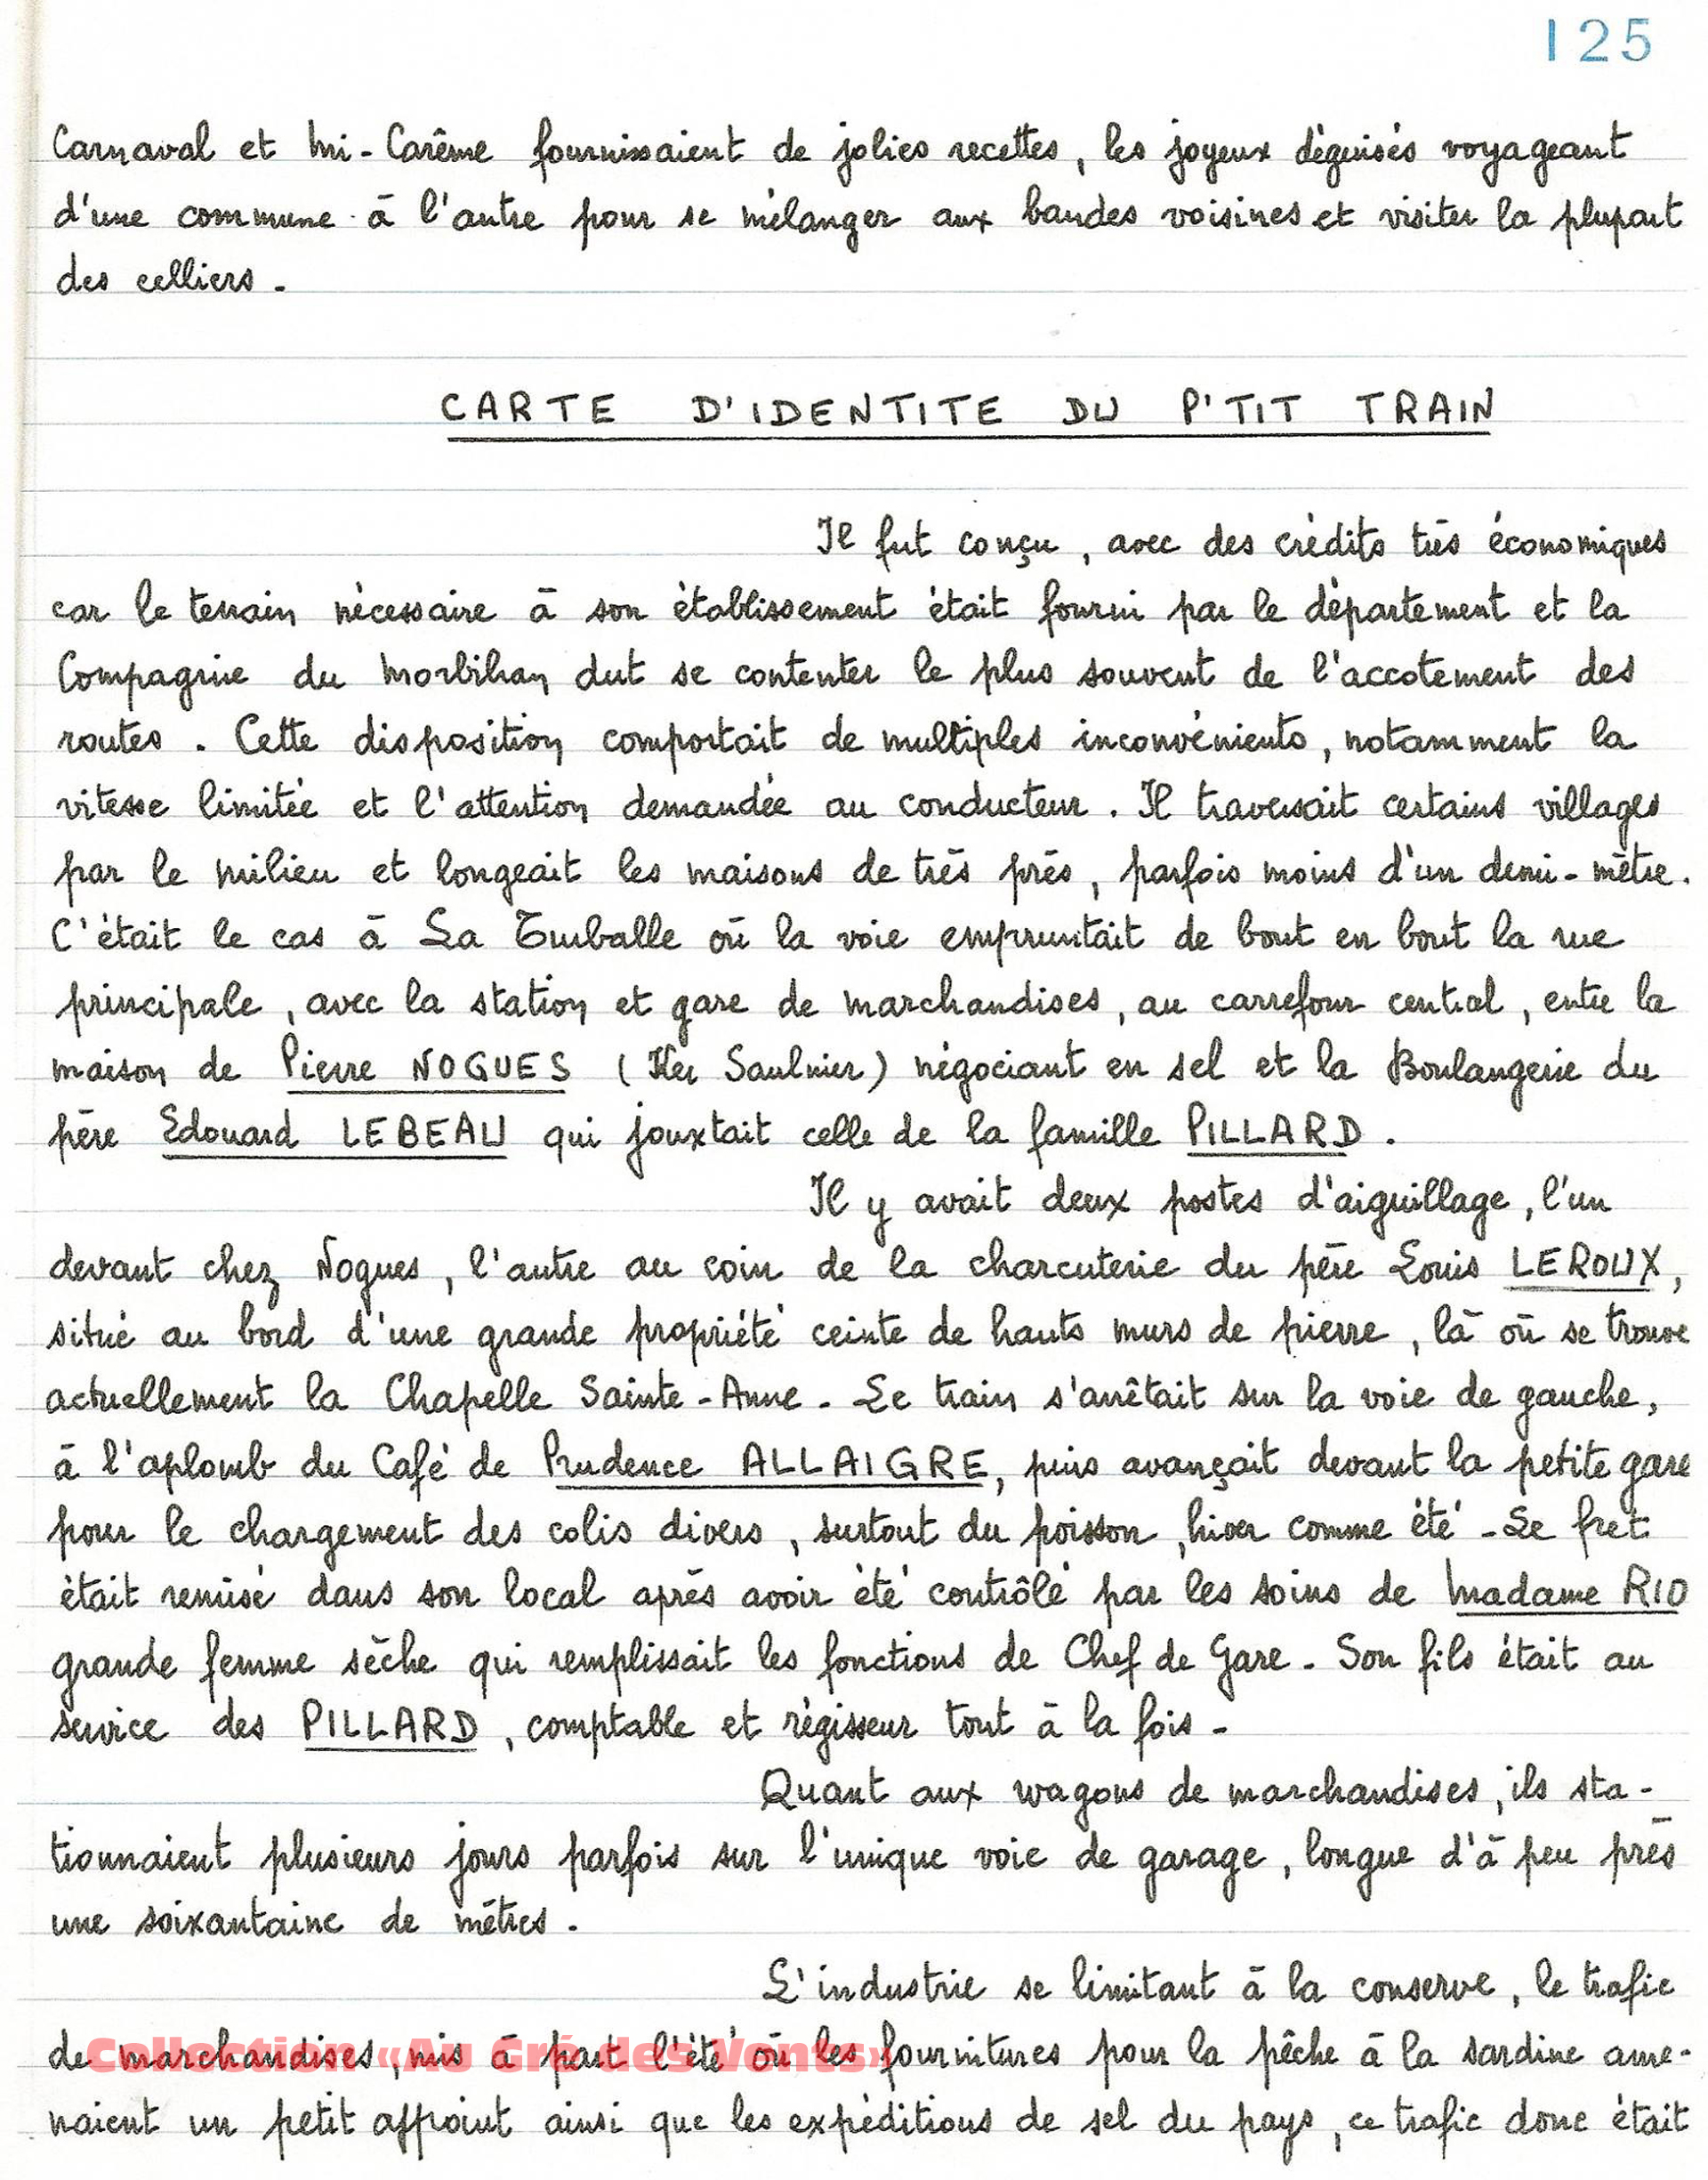 125
Carnaval et Mi-Carême fournissaient de jolies recettes, les joyeux déguisés voyageant
d'une commune à l'autre pour se mélanger aux bandes voisines et visiter la plupart
des celliers.
CARTE D'IDENTITE DU P'TIT TRAIN
Il fut conçu, avec des crédits très économiques
car le terrain nécessaire à son établissement était fourni par le département et la
Compagnie du Morbihan dut se contenter le plus souvent de l'accotement des
routes. Cette disposition comportait de multiples inconvénients, notamment la
vitesse limitée et l'attention demandée au conducteur. Il traversait certains villages
par le milieu et longeait les maisons de très près, parfois moins d'un demi-mètre.
C'était le cas à La Turballe où la voie empruntait de bout en bout la rue
principale, avec la station et gare de marchandises, au carrefour central, entre la
maison de Pierre NOGUES (Ker Saulnier) négociant en sel et la Boulangerie du
père Edouard LEBEAU qui jouxtait celle de la famille PILLARD.
Il y avait deux postes d'aiguillage, l'un
devant chez Nogues, l'autre au coin de la charcuterie du père Louis LEROUX,
situé au bord d'une grande propriété ceinte de hauts murs de pierre, là où se trouve
actuellement la Chapelle Sainte-Anne - Le train s'arrêtait sur la voie de gauche,
à l'aplomb du Café de Prudence ALLAIGRE, puis avançait devant la petite gare
pour le chargement des colis divers, surtout du poisson, hiver comme été - Le fret
était remisé dans son local après avoir été contrôlé par les soins de Madame RIO
grande femme sèche qui remplissait les fonctions de Chef de Gare - Son fils était au
service des PILLARD, comptable et régisseur tout à la fois -
Quant aux wagons de marchandises, ils sta-
tionnaient plusieurs jours parfois sur l'unique voie de garage, longue d'à peu près
une soixantaine de mètres.
L'industrie se limitant à la conserve, le trafic
de marchandises, mis à part l'été où les fournitures pour la pêche à la sardine ame-
Collection «Au Gré des Vents»
naient un petit appoint ainsi que les expéditions de sel du pays, ce trafic donc était